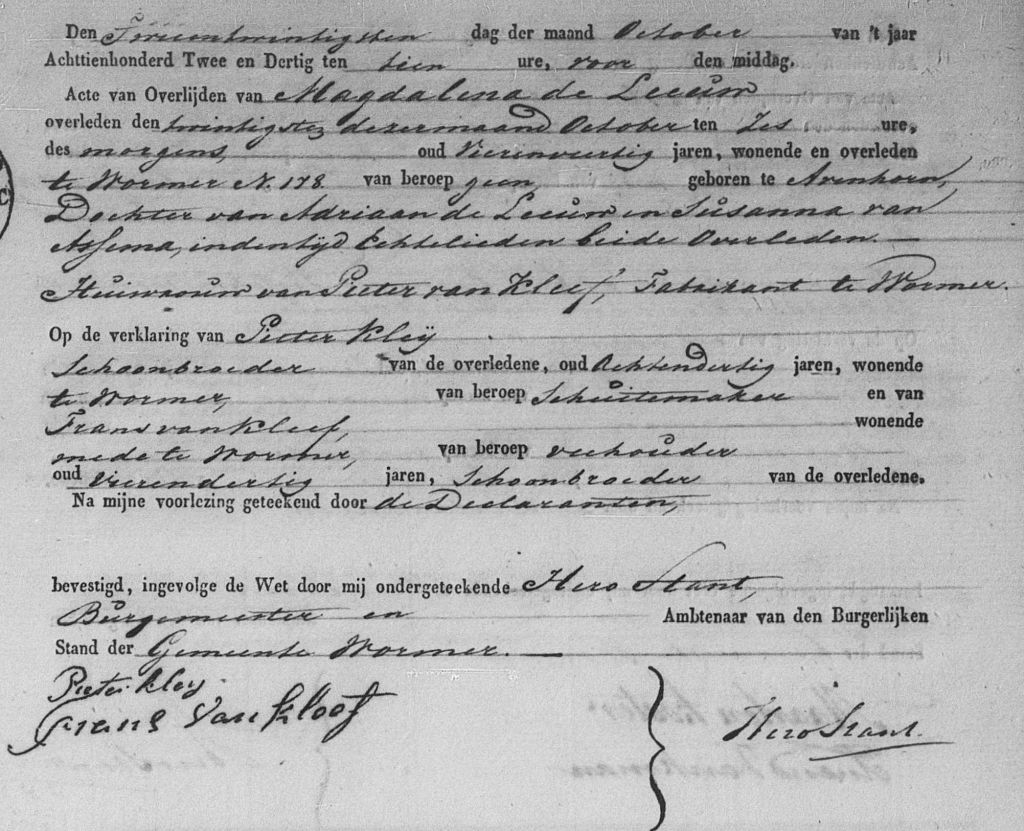 Den Tweeentwintigsten dag der maand October van 't jaar
Achttienhonderd Twee en Dertig ten tien ure, voor den middag.
Acte van Overlijden van Magdalena de Leeuw
overleden den twintigsten dezermaand October ten Zes ure,
des morgens, oud Vierenveertig jaren, wonende en overleden
te Wormer N. 178. van beroep geen, geboren te Avenhorn,
Dochter van Adriaan de Leeuw en Susanna van
Assema, indentijd Echtelieden beide Overleden.
Huisvrouw van Pieter van Kleef, Fabrikant te Wormer.
Op de verklaring van Pieter Kleij
Schoonbroeder van de overledene, oud Achtendertig jaren, wonende
te Wormer, van beroep Schuitemaker en van
Frans van Kleef, wonende
mede te Wormer, van beroep veehouder
oud Vierendertig jaren, Schoonbroeder van de overledene.
Na mijne voorlezing geteekend door de Declaranten,
bevestigd, ingevolge de Wet door mij ondergeteekende Hero Stant,
Burgemeester en Ambtenaar van den Burgerlijken
Stand der Gemeente Wormer.
Pieter kley
frans Van kloof
Hero Stant.